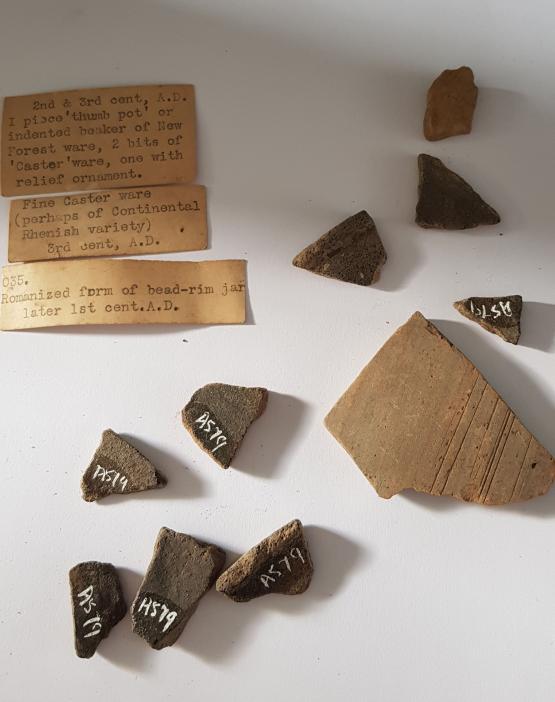 2nd & 3rd cent, A.D.
I piece 'thumb pot' or
indented beaker of New
Forest ware, 2 bits of
'Caster'ware, one with
relief ornament.
Fine Caster ware
(perhaps of Continental
Rhenish variety)
3rd cent, A.D.
035.
Romanized form of bead-rim jar
later 1st cent.A.D.
A579
A579
A579
A579
A579
A579